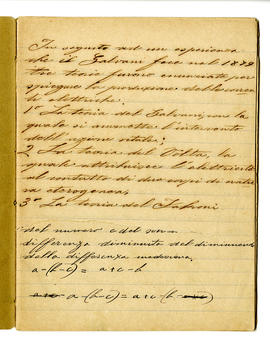 In seguito ad un esperienza
che il Galvani fece nel 1879
tre teorie furono enunciate per
spiegare la produzione delle correnti
elettriche.
1º La teoria del Galvani, con la
quale si ammette l'intervento
dell'azione vitale;
2 La teoria del Volta, la
quale attribuisce l'elettricità
al contatto di due corpi di natura
eterogenea;
3º La teoria del Fabroni
del numero c del
differenza diminuita del
della differenza medesima,
a-(b-c) = a+c-b
a-(b-c) = a+c-(b